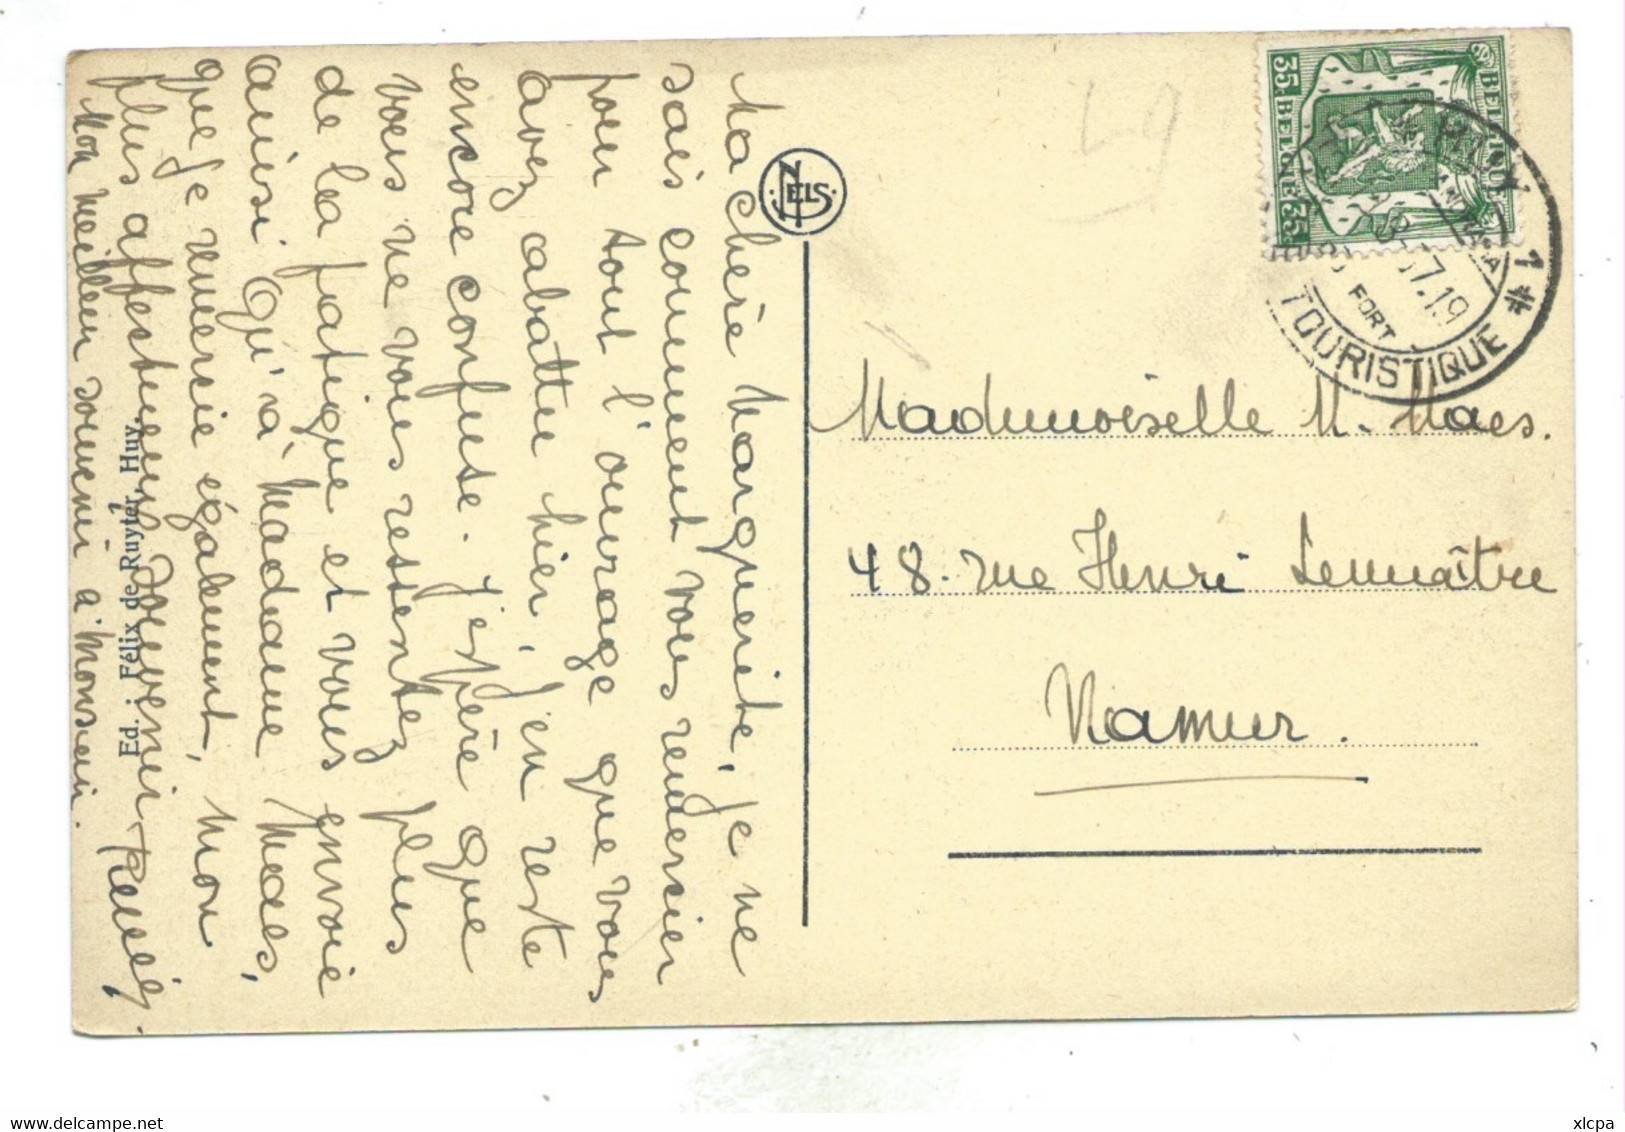 Ma chère Marguerite, je ne
sais comment vous remercier
pour tout l'ouvrage que vous
avez abattu hier, j'en reste
encore confuse. J'espère que
vous ne vous ressentez plus
de la fatigue et vous envoie
ainsi qu'à Madame Maes,
que je remercie également, mon
plus affectueux souvenir
Mon meilleur souvenir à Monsieur.
Ed. : Félix de Ruyter, Huy.
NELS
BELGIQUE
35 BELGIE 35
HUY 1
FORT
TOURISTIQUE
Mademoiselle M. Maes.
48. rue Henri Lemaître
Namur.
delcampe.net
xlcpa